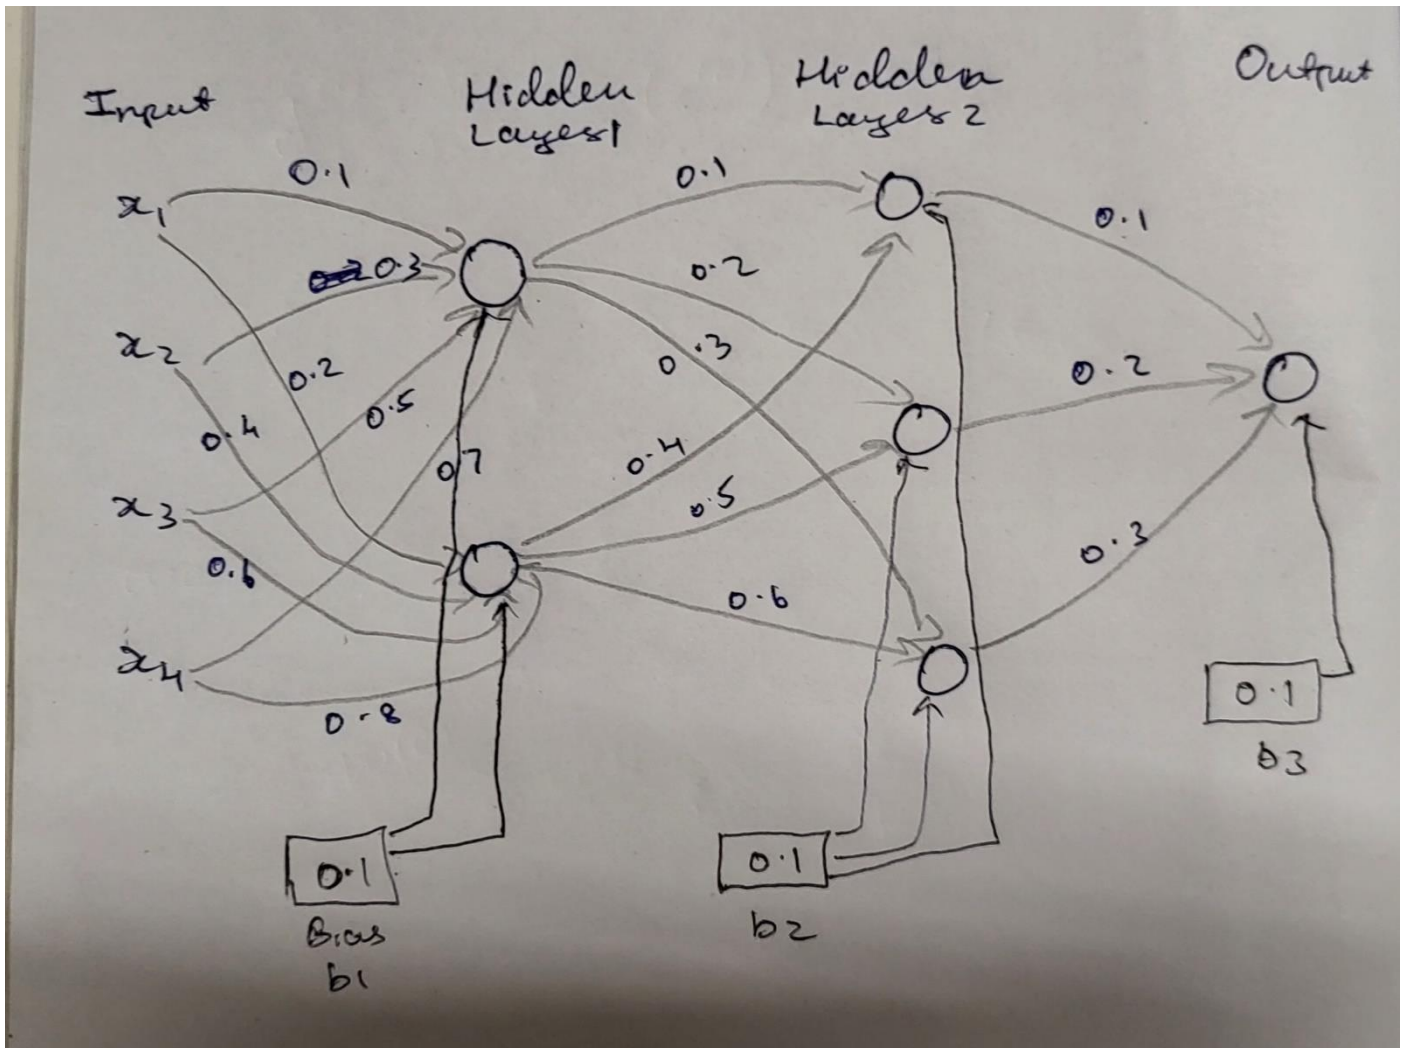 Input
Hidden
Layer 1
Hidden
Layer 2
Output
0.1
0.3
0.2
0.4
0.5
0.7
0.6
0.8
x1
x2
x3
x4
0.1
0.2
0.3
0.4
0.5
0.6
0.1
0.2
0.3
0.1
Bias
b1
0.1
b2
0.1
b3